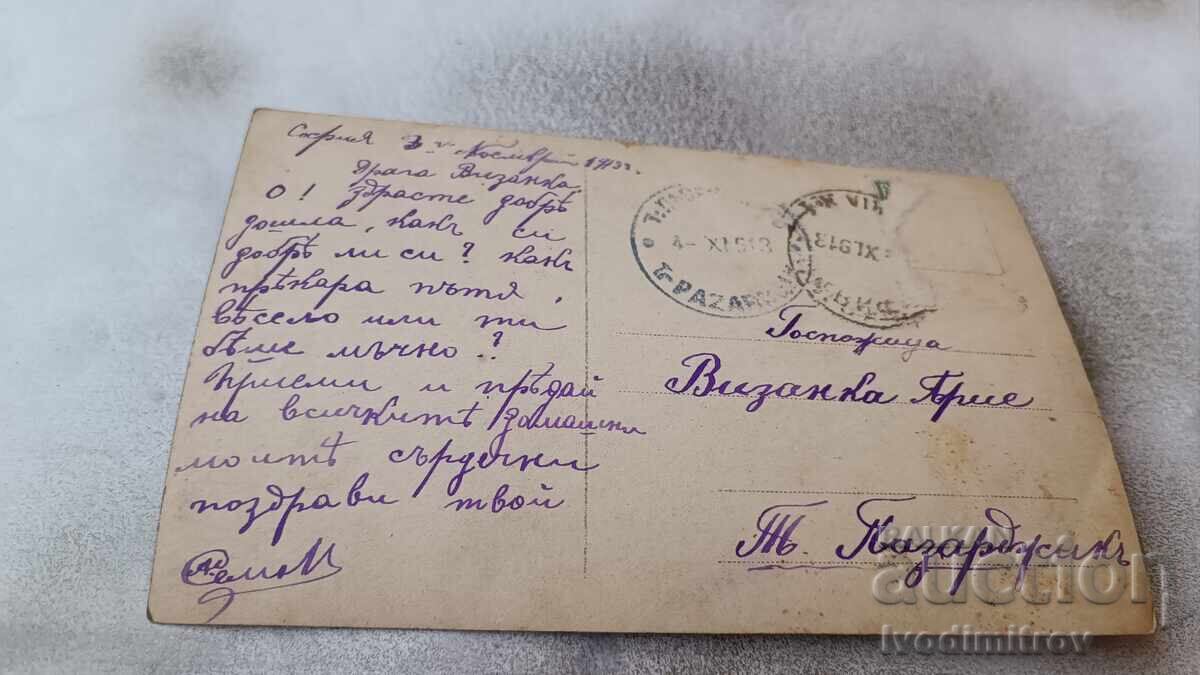 София 3 Ноемврий 1913 г.
Драга Византка,
О! здрасте добрѣ
дошла, какъ си
добрѣ ли си? какъ
прѣкара пътя,
весело или ти
бѣше мъчно?
Приеми и прѣдай
на всичкитѣ домашни
моитѣ сърдечни
поздрави твой
4 - XI 913
PAZAR
XI.913
Госпожица
Византка Арие
Т. Пазарджикъ
BALKAN
auction
Ivodimitrov